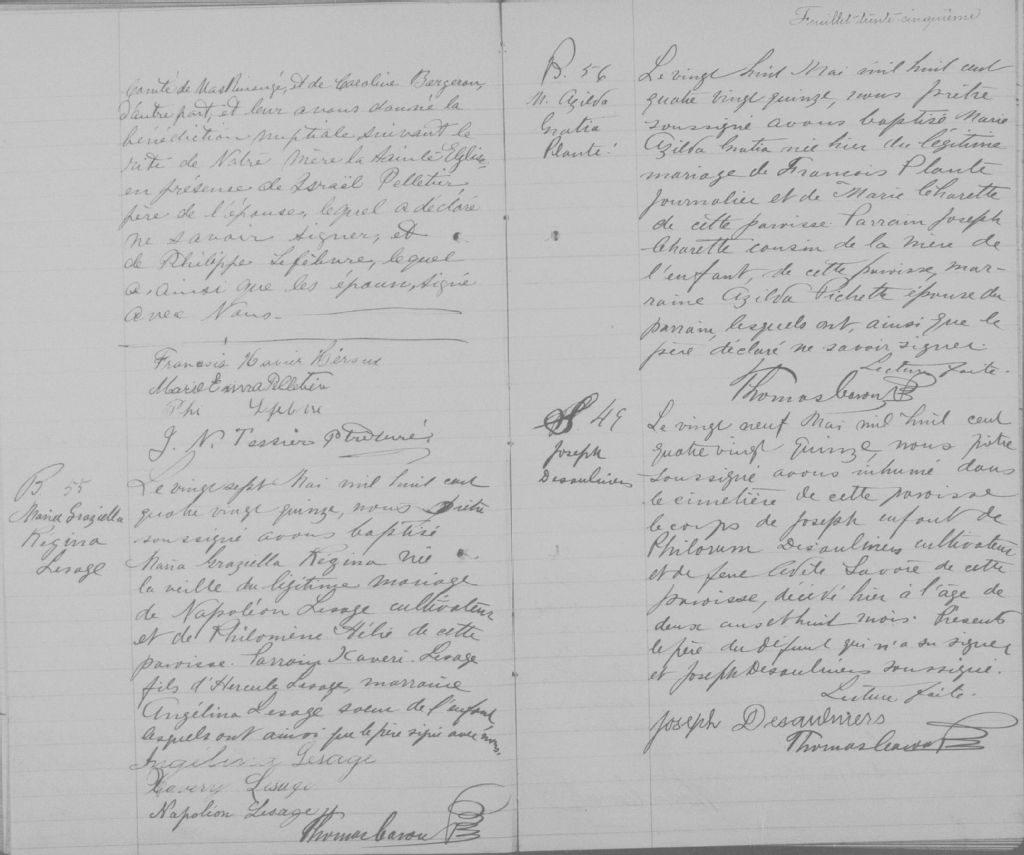 Comté de Maskinongé, et de Caroline Bergeron,
d'autre part, et leur avons donné la
bénédiction nuptiale suivant le
rite de Notre Mère la Sainte Eglise
en présence de Israël Pelletier,
père de l'épouse, lequel a déclaré
ne savoir signer, et
de Philippe Lefebvre, lequel
a, ainsi que les époux, signé
avec Nous.
Francois Xavier
Marie Emma Pelletier
Phi Lefebvre
J. N. Tessier Ptre Curé
B 55
Maria Graziella
Regina
Lesage
Le vingt sept Mai mil huit cent
quatre vingt quinze, nous Prêtre
soussigné avons baptisé
Maria Graziella Régina née
la veille du légitime mariage
de Napoléon Lesage cultivateur
et de Philomène Hélie de cette
paroisse. Parrain Xaveri Lesage
fils d'Hercule Lesage, marraine
Angélina Lesage soeur de l'enfant
lesquels ont ainsi que le père signé avec nous.
Angélina Lesage
Xavery Lesage
Napoléon Lesage
Thomas Caron Ptre
Feuillet trente cinquième
B. 56
M. Azilda
Gratia
Plante.
Le vingt huit Mai mil huit cent
quatre vingt quinze, nous prêtre
soussigné avons baptisé Marie
Azilda Gratia née hier du légitime
mariage de Francois Plante
journalier et de Marie Charette
de cette paroisse. Parrain Joseph
Charette cousin de la mère de
l'enfant, de cette paroisse, mar-
raine Azilda Pichette épouse du
parrain, lesquels ont, ainsi que le
père déclaré ne savoir signer.
Lecture faite.
Thomas Caron Ptre
S. 49
Joseph
Desaulniers
Le vingt neuf Mai mil huit cent
quatre vingt quinze, nous prêtre
soussigné avons inhumé dans
le cimetière de cette paroisse
le corps de Joseph enfant de
Philorum Desaulniers cultivateur
et de feue Adite Savoie de cette
paroisse, décédé hier à l'âge de
deux ans et huit mois. Présents
le père du défunt qui n'a su signer
et Joseph Desaulniers soussigné.
Lecture faite.
Joseph Desaulniers
Thomas Caron Ptre